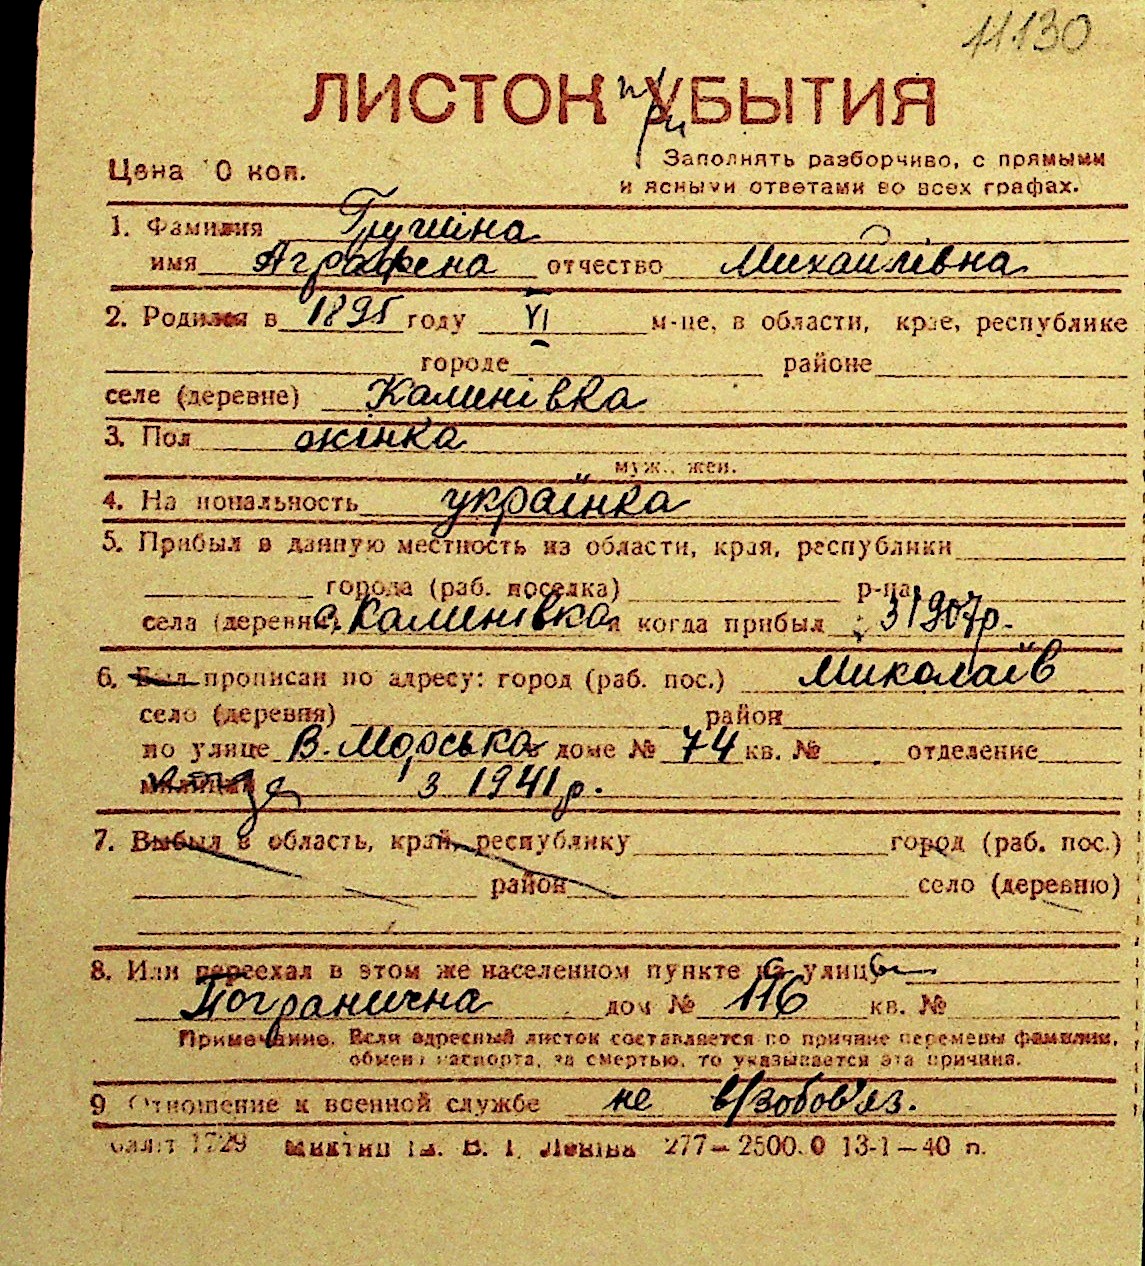 11130
ЛИСТОК при УБЫТИЯ
Цена 10 коп.
Заполнять разборчиво, с прямыми
и ясными ответами во всех графах.
1. Фамилия Грушіна
имя Аграфена отчество Михайлівна
2. Родился в 1895 году VI м-це, в области, крае, республике
городе районе
селе (деревне) Калинівка
3. Пол жінка
муж., жен.
4. Национальность українка
5. Прибыл в данную местность из области, края, республики
города (раб. поселка) р-на
села (деревни) с. Калинівка и когда прибыл з 1907 р.
6. Был прописан по адресу: город (раб. пос.) Миколаїв
село (деревня) район
по улице В. Морська доме № 74 кв. № отделение
милиции з 1941 р.
7. Выбыл в область, край, республику город (раб. пос.)
район село (деревню)
8. Или переехал в этом же населенном пункте на улицу
Погранична дом № 116 кв. №
Примечание. Если адресный листок составляется по причине перемены фамилии,
обмена паспорта, за смертью, то указывается эта причина.
9 Отношение к военной службе не в/зобов'яз.
1729 Ім. В. І. Леніна 277—2500.0 13-1—40 п.